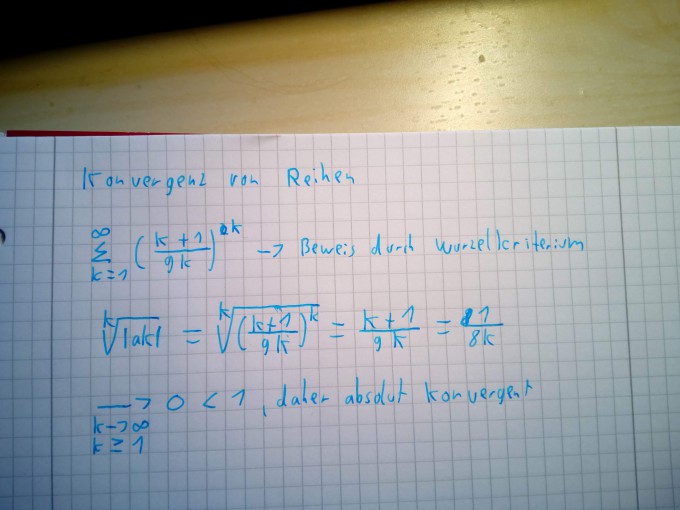 Konvergenz von Reihen
∞ ∑ k=1 (k+1/9k)^k → Beweis durch Wurzelkriterium
k√|ak| = k√(k+1/9k)^k = k+1/9k = 1/8k
→ 0 < 1, daher absolut konvergent
k→∞
k ≥ 1